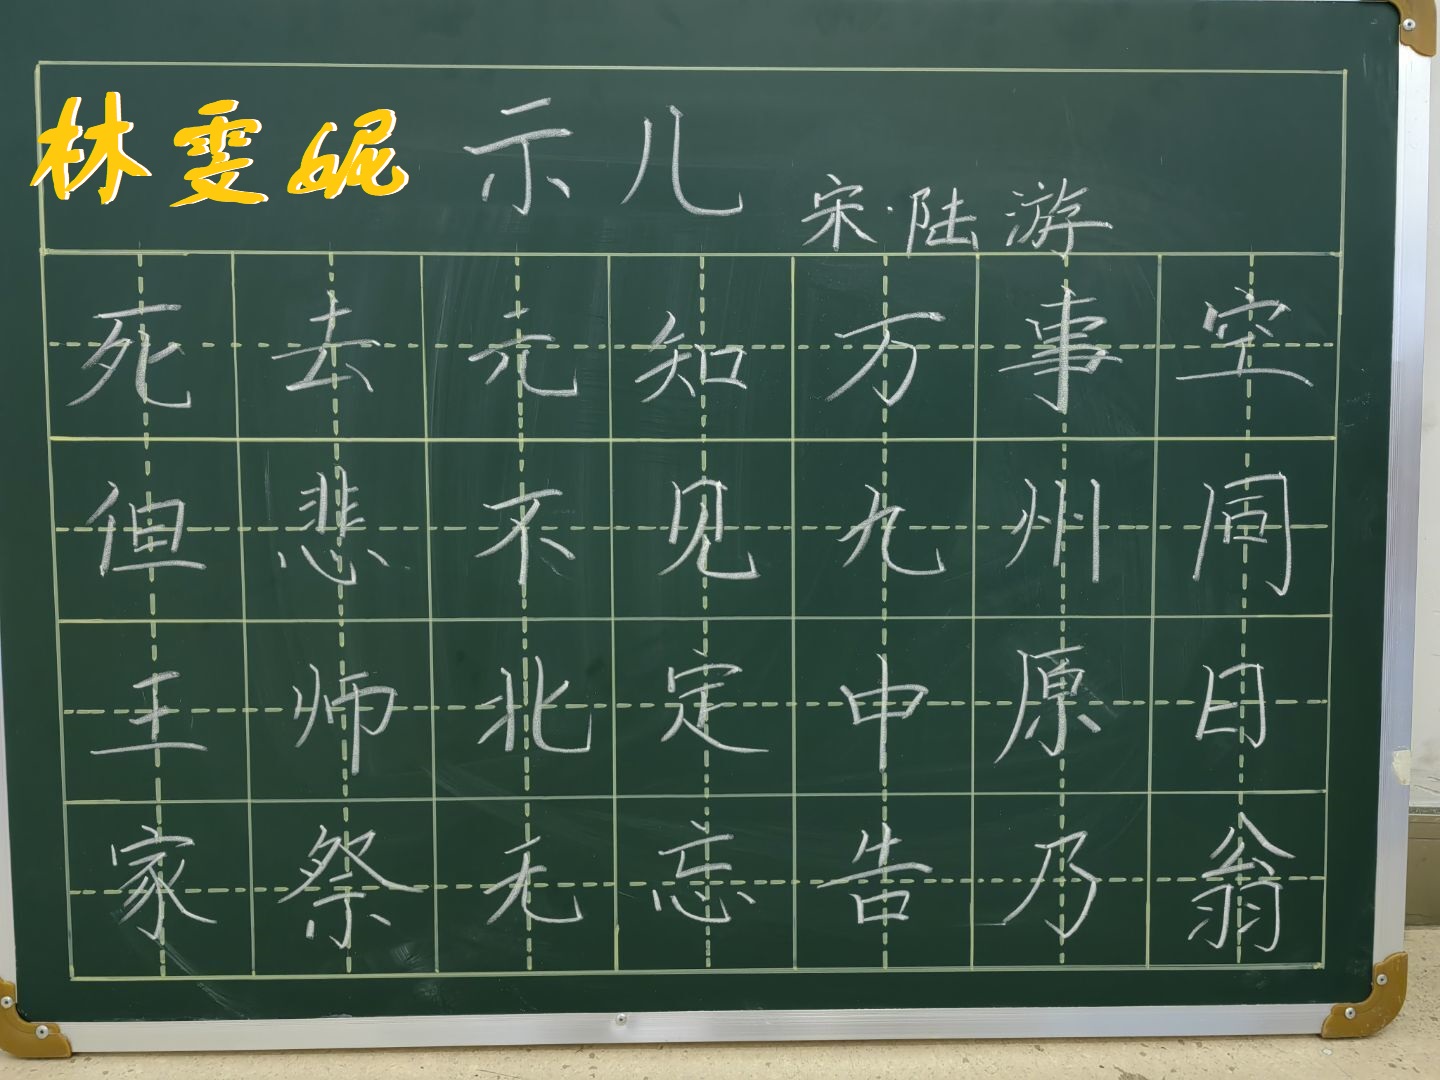 林雯妮 示儿 宋·陆游
死去元知万事空
但悲不见九州同
王师北定中原日
家祭无忘告乃翁